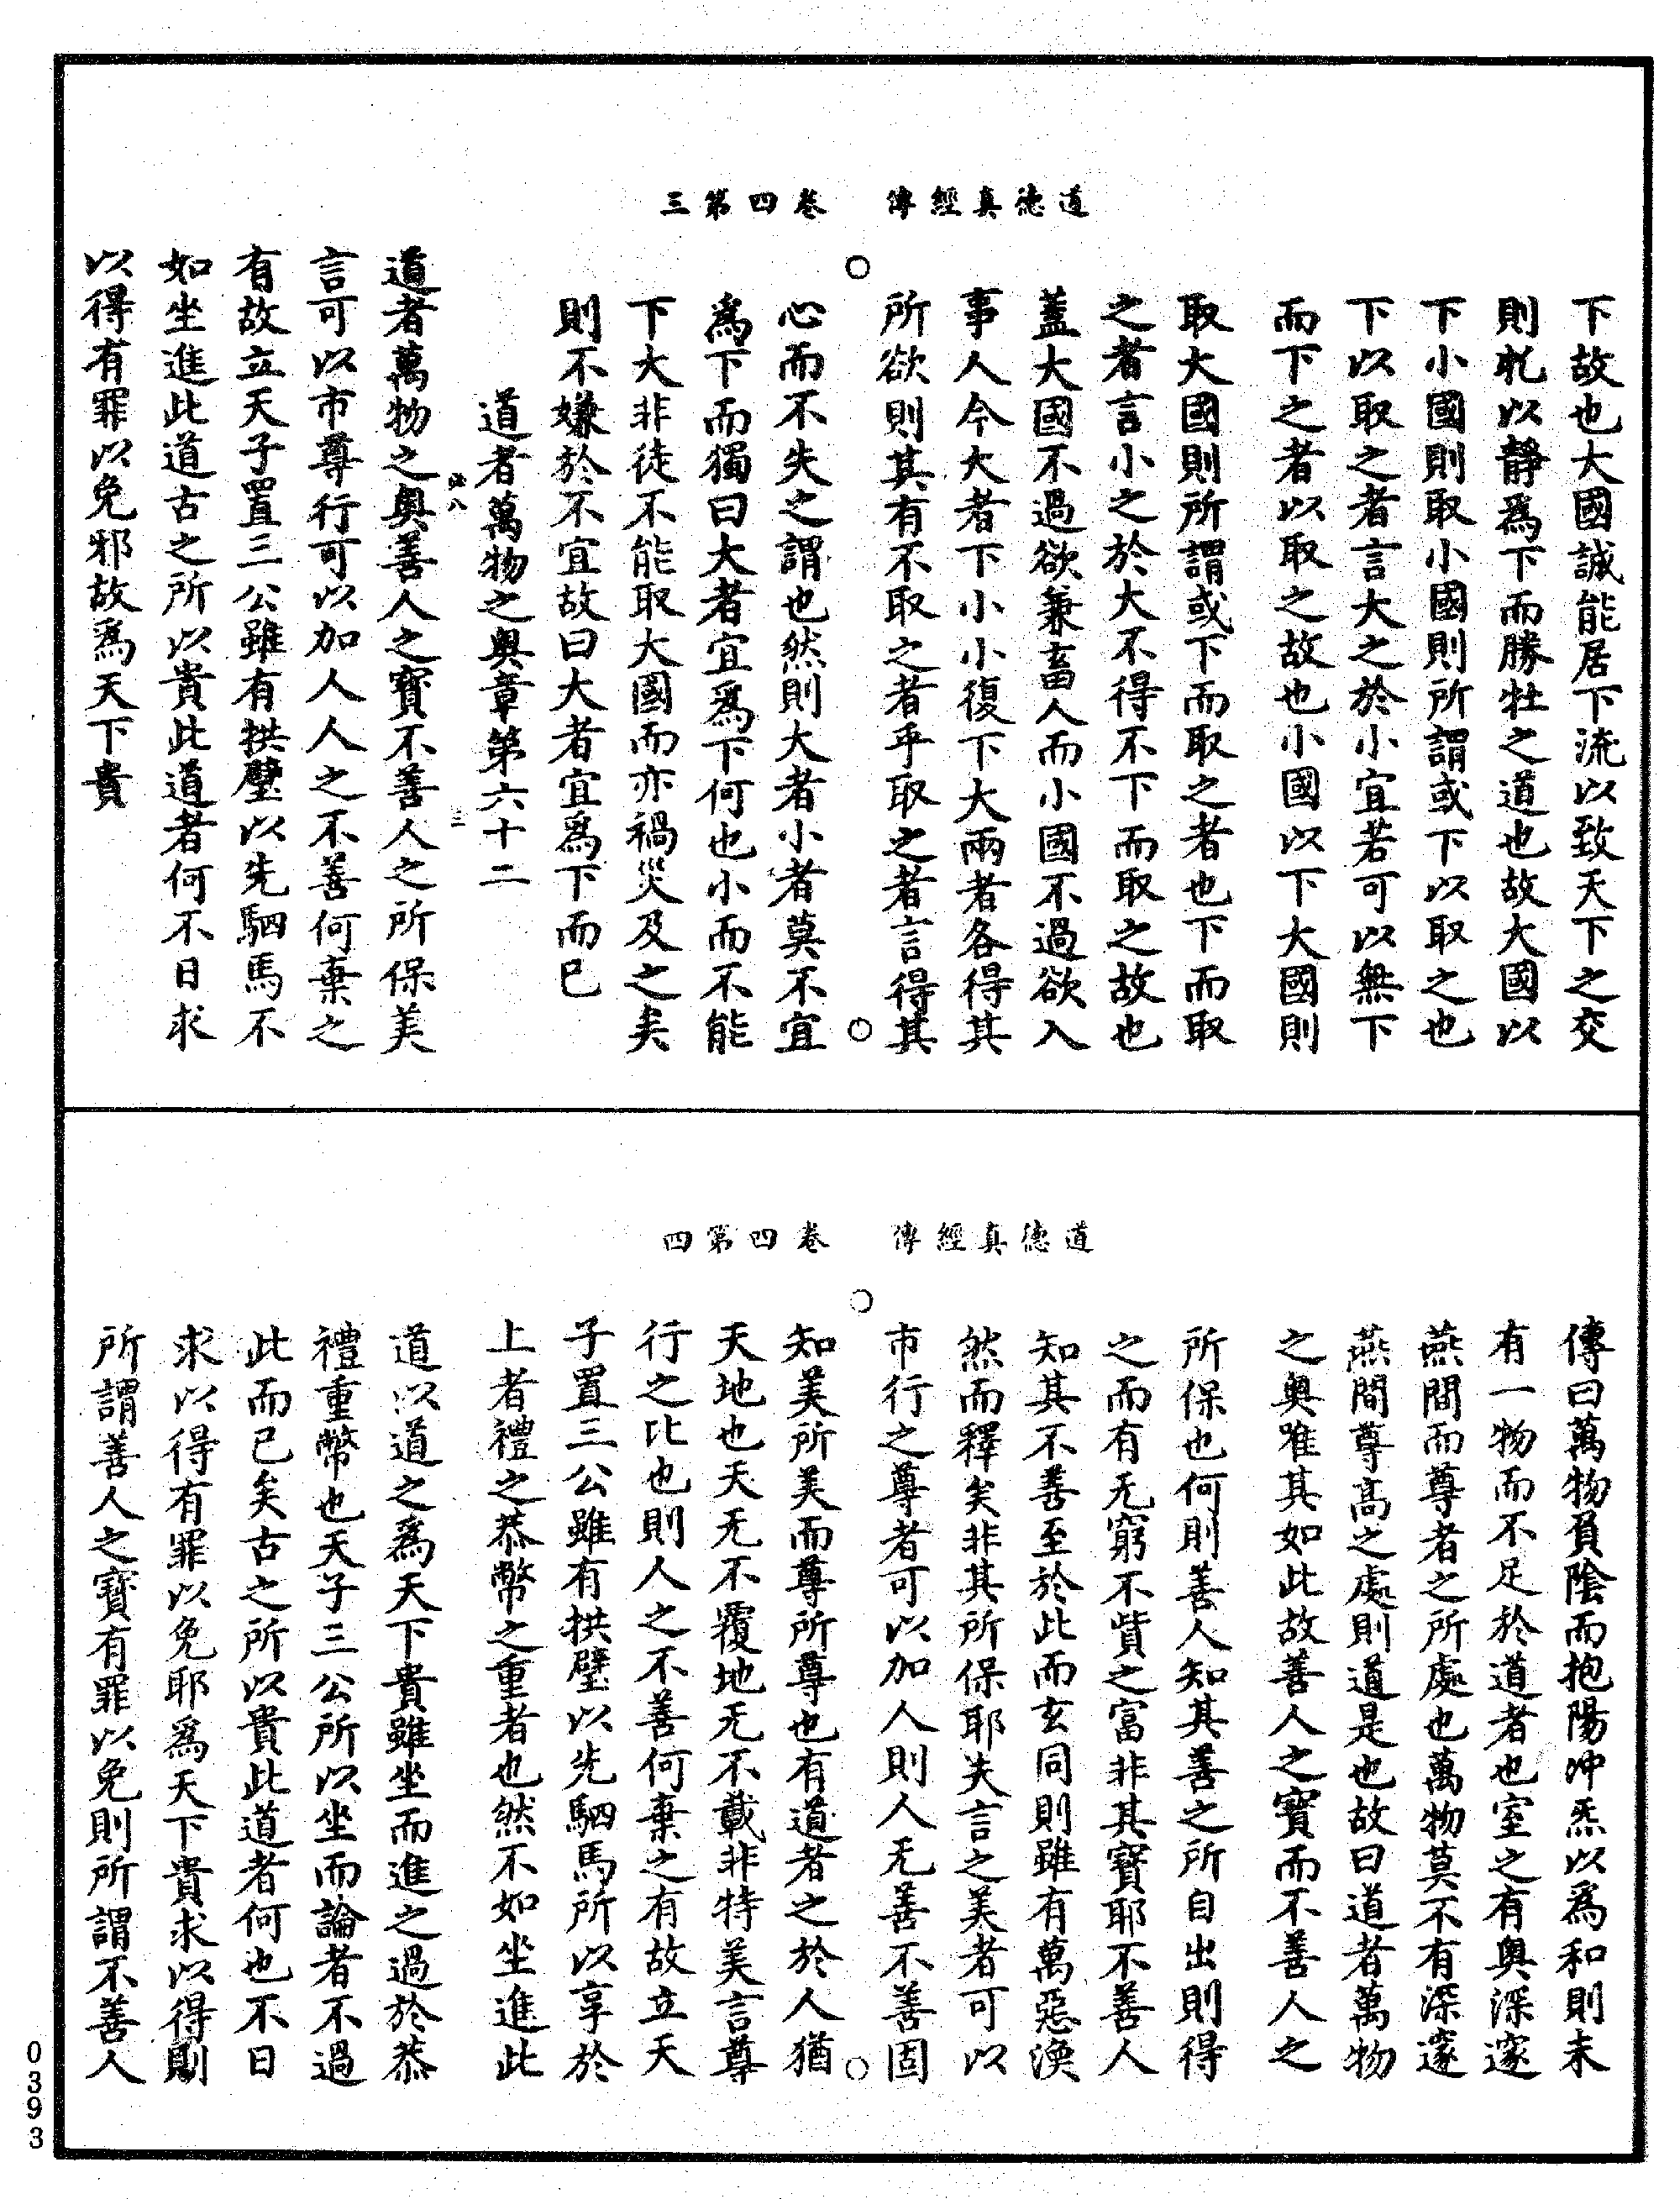 道德真經傳　卷四第三
下故也大國誠能居下流以致天下之交
則牝以靜爲下而勝牡之道也故大國以
下小國則取小國則所謂或下以取之也
下以取之者言大之於小宜若可以無下
而下之者以取之故也小國以下大國則
取大國則所謂或下而取之者也下而取
之者言小之於大不得不下而取之故也
蓋大國不過欲兼畜人而小國不過欲入
事人今大者下小小復下大兩者各得其
所欲則其有不取之者乎取之者言得其
心而不失之謂也然則大者小者莫不宜
爲下而獨曰大者宜爲下何也小而不能
下大非徒不能取大國而亦禍災及之矣
則不嫌於不宜故曰大者宜爲下而已
道者萬物之奧章第六十二
八
三
道者萬物之奧善人之寶不善人之所保美
言可以市尊行可以加人人之不善何棄之
有故立天子置三公雖有拱璧以先駟馬不
如坐進此道古之所以貴此道者何不日求
以得有罪以免邪故爲天下貴
道德真經傳　卷四第四
傳曰萬物負陰而抱陽沖炁以爲和則未
有一物而不足於道者也室之有奧深邃
燕間而尊者之所處也萬物莫不有深邃
燕間尊高之處則道是也故曰道者萬物
之奧唯其如此故善人之寶而不善人之
所保也何則善人知其善之所自出則得
之而有无窮不貲之富非其寶耶不善人
知其不善至於此而玄同則雖有萬惡渙
然而釋矣非其所保耶夫言之美者可以
市行之尊者可以加人則人无善不善固
知美所美而尊所尊也有道者之於人猶
天地也天无不覆地无不載非特美言尊
行之比也則人之不善何棄之有故立天
子置三公雖有拱璧以先駟馬所以享於
上者禮之恭幣之重者也然不如坐進此
道以道之爲天下貴雖坐而進之過於恭
禮重幣也天子三公所以坐而論者不過
此而已矣古之所以貴此道者何也不日
求以得有罪以免耶爲天下貴求以得則
所謂善人之寶有罪以免則所謂不善人
0393